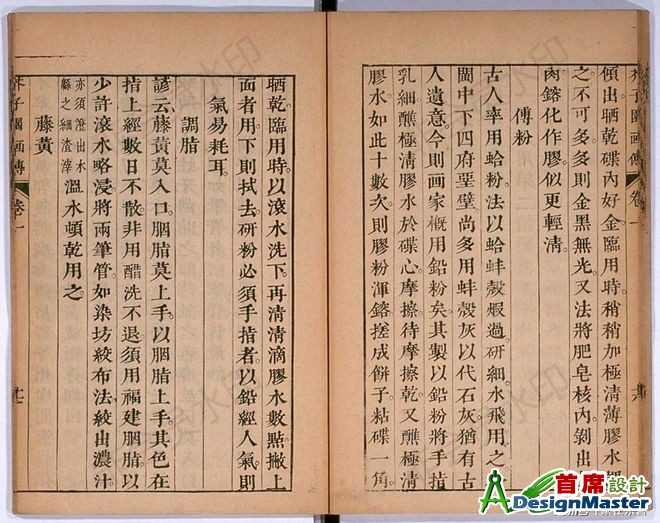 子園画傳 卷一
傾出晒乾碟內好金臨用時稍稍加極清薄膠水
之不可多多則金黑無光又法將肥皂核內剝出
肉鎔化作膠似更輕清。
傅粉
古人率用蛤粉法以蛤蚌殼煆過研細水飛用之。
閩中下四府堊壁尚多用蚌殼灰以代石灰猶有古
人遺意。今則画家概用鉛粉矣其製以鉛粉將手指
乳細蘸極清膠水於碟心摩擦待摩擦乾又蘸極清
膠水如此十數次則膠粉渾鎔搓成餅子粘碟一角
晒乾臨用時以滾水洗下。再清清滴膠水數點撇上
面者用。下則拭去。研粉必須手指者以鉛經人氣則
氣易耗耳。
調脂
諺云藤黃莫入口。胭脂莫上手。以胭脂上手其色在
指上經數日不散非用醋洗不退。須用福建胭脂以
少許滾水略浸將兩筆管如染坊絞布法絞出濃汁
溫水頓乾用之。
亦須澄出木
緜之細渣滓
藤黃
芥子園画傳 卷一
首席設計
DesignMaster